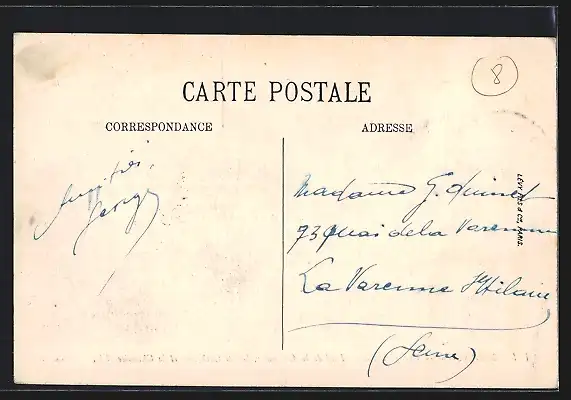 8
CARTE POSTALE
CORRESPONDANCE
ADRESSE
Amitiés,
Madame G. Quinet
73 Quai de la Varenne
La Varenne St Hilaire
(Seine)
LÉVY FILS & Cie, PARIS.